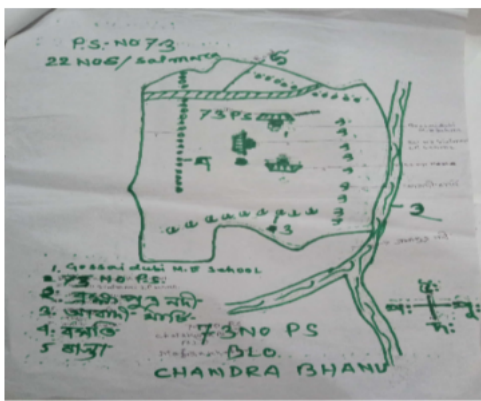 P.S. NO 73
22 NO S/ Salmara
৫
73 PS
৪
৩
1. Gossai dubi M.E School
73 NO P.S.
২. ব্ৰহ্মপুত্ৰ নদী
৩. আবাদী মাটি
৪. বসতি
৫ ৰাস্তা
73 NO PS
BLO.
CHANDRA BHANU
উঃ
পঃ পূঃ
দঃ